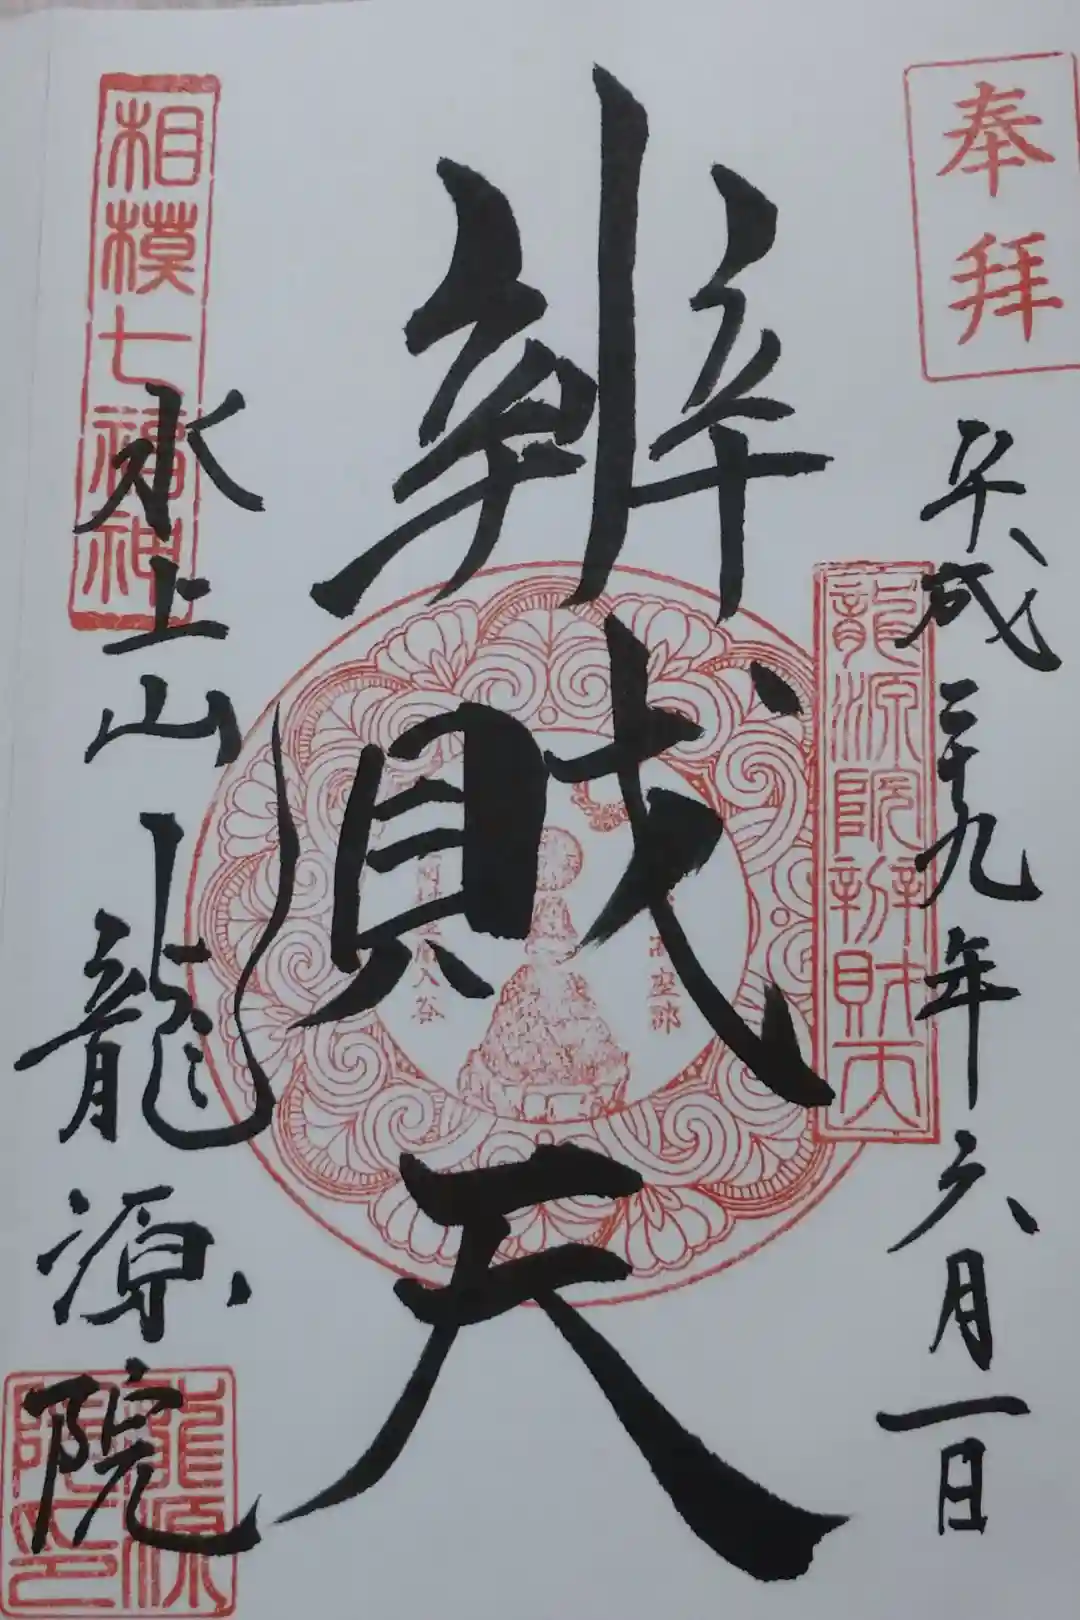 奉拝
平成二十九年六月一日
龍源院辨財天
辨財天
相模七福神
水上山
龍源院
龍源院印